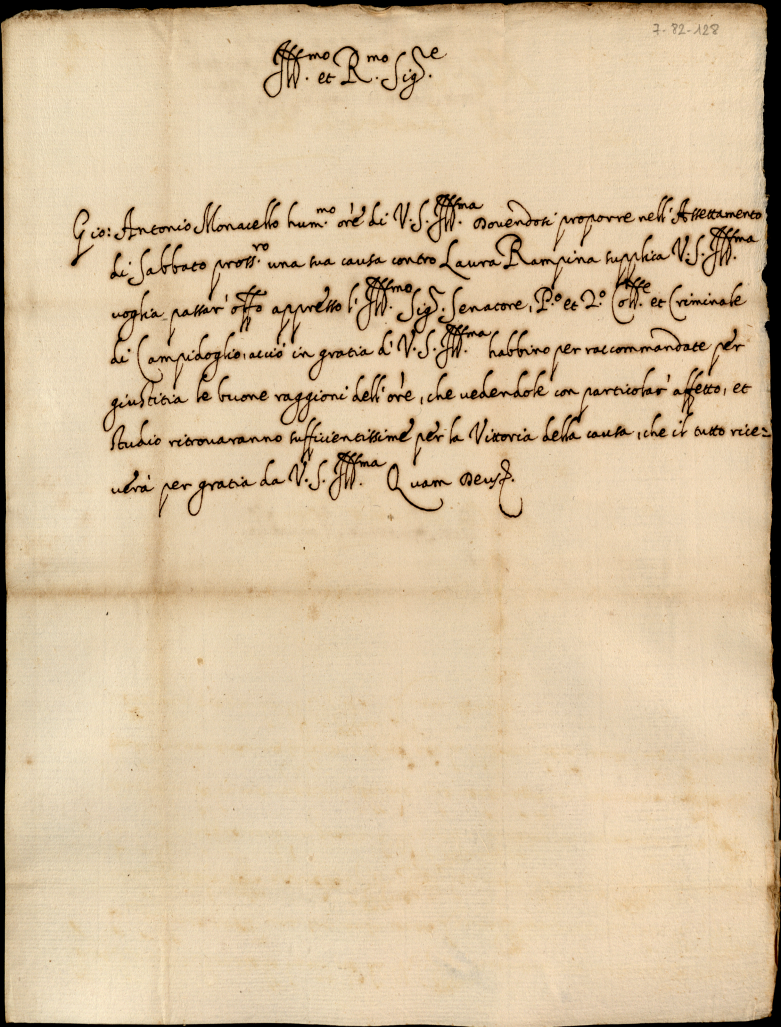 7-82-128
Ill.mo et R.mo Sig.e
Gio: Antonio Monacello hum.mo ore di V.S. Ill.ma Dovendosi proporre nell'Assettamento
di Sabbato pross.ro una sua causa contro Laura Rampina supplica V.S. Ill.ma
voglia passar' offo appresso l'Ill.mo Sig. Senatore, P.o et 2.o Coll.e et Criminale
di Campidoglio, acciò in gratia di V.S. Ill.ma habbino per raccommandate per
giustitia le buone raggioni dell'ore, che vedendole con particolar' affetto, et
studio ritrovaranno sufficientissime per la Vittoria della causa, che il tutto rice=
verà per gratia da V.S. Ill.ma Quam Deus